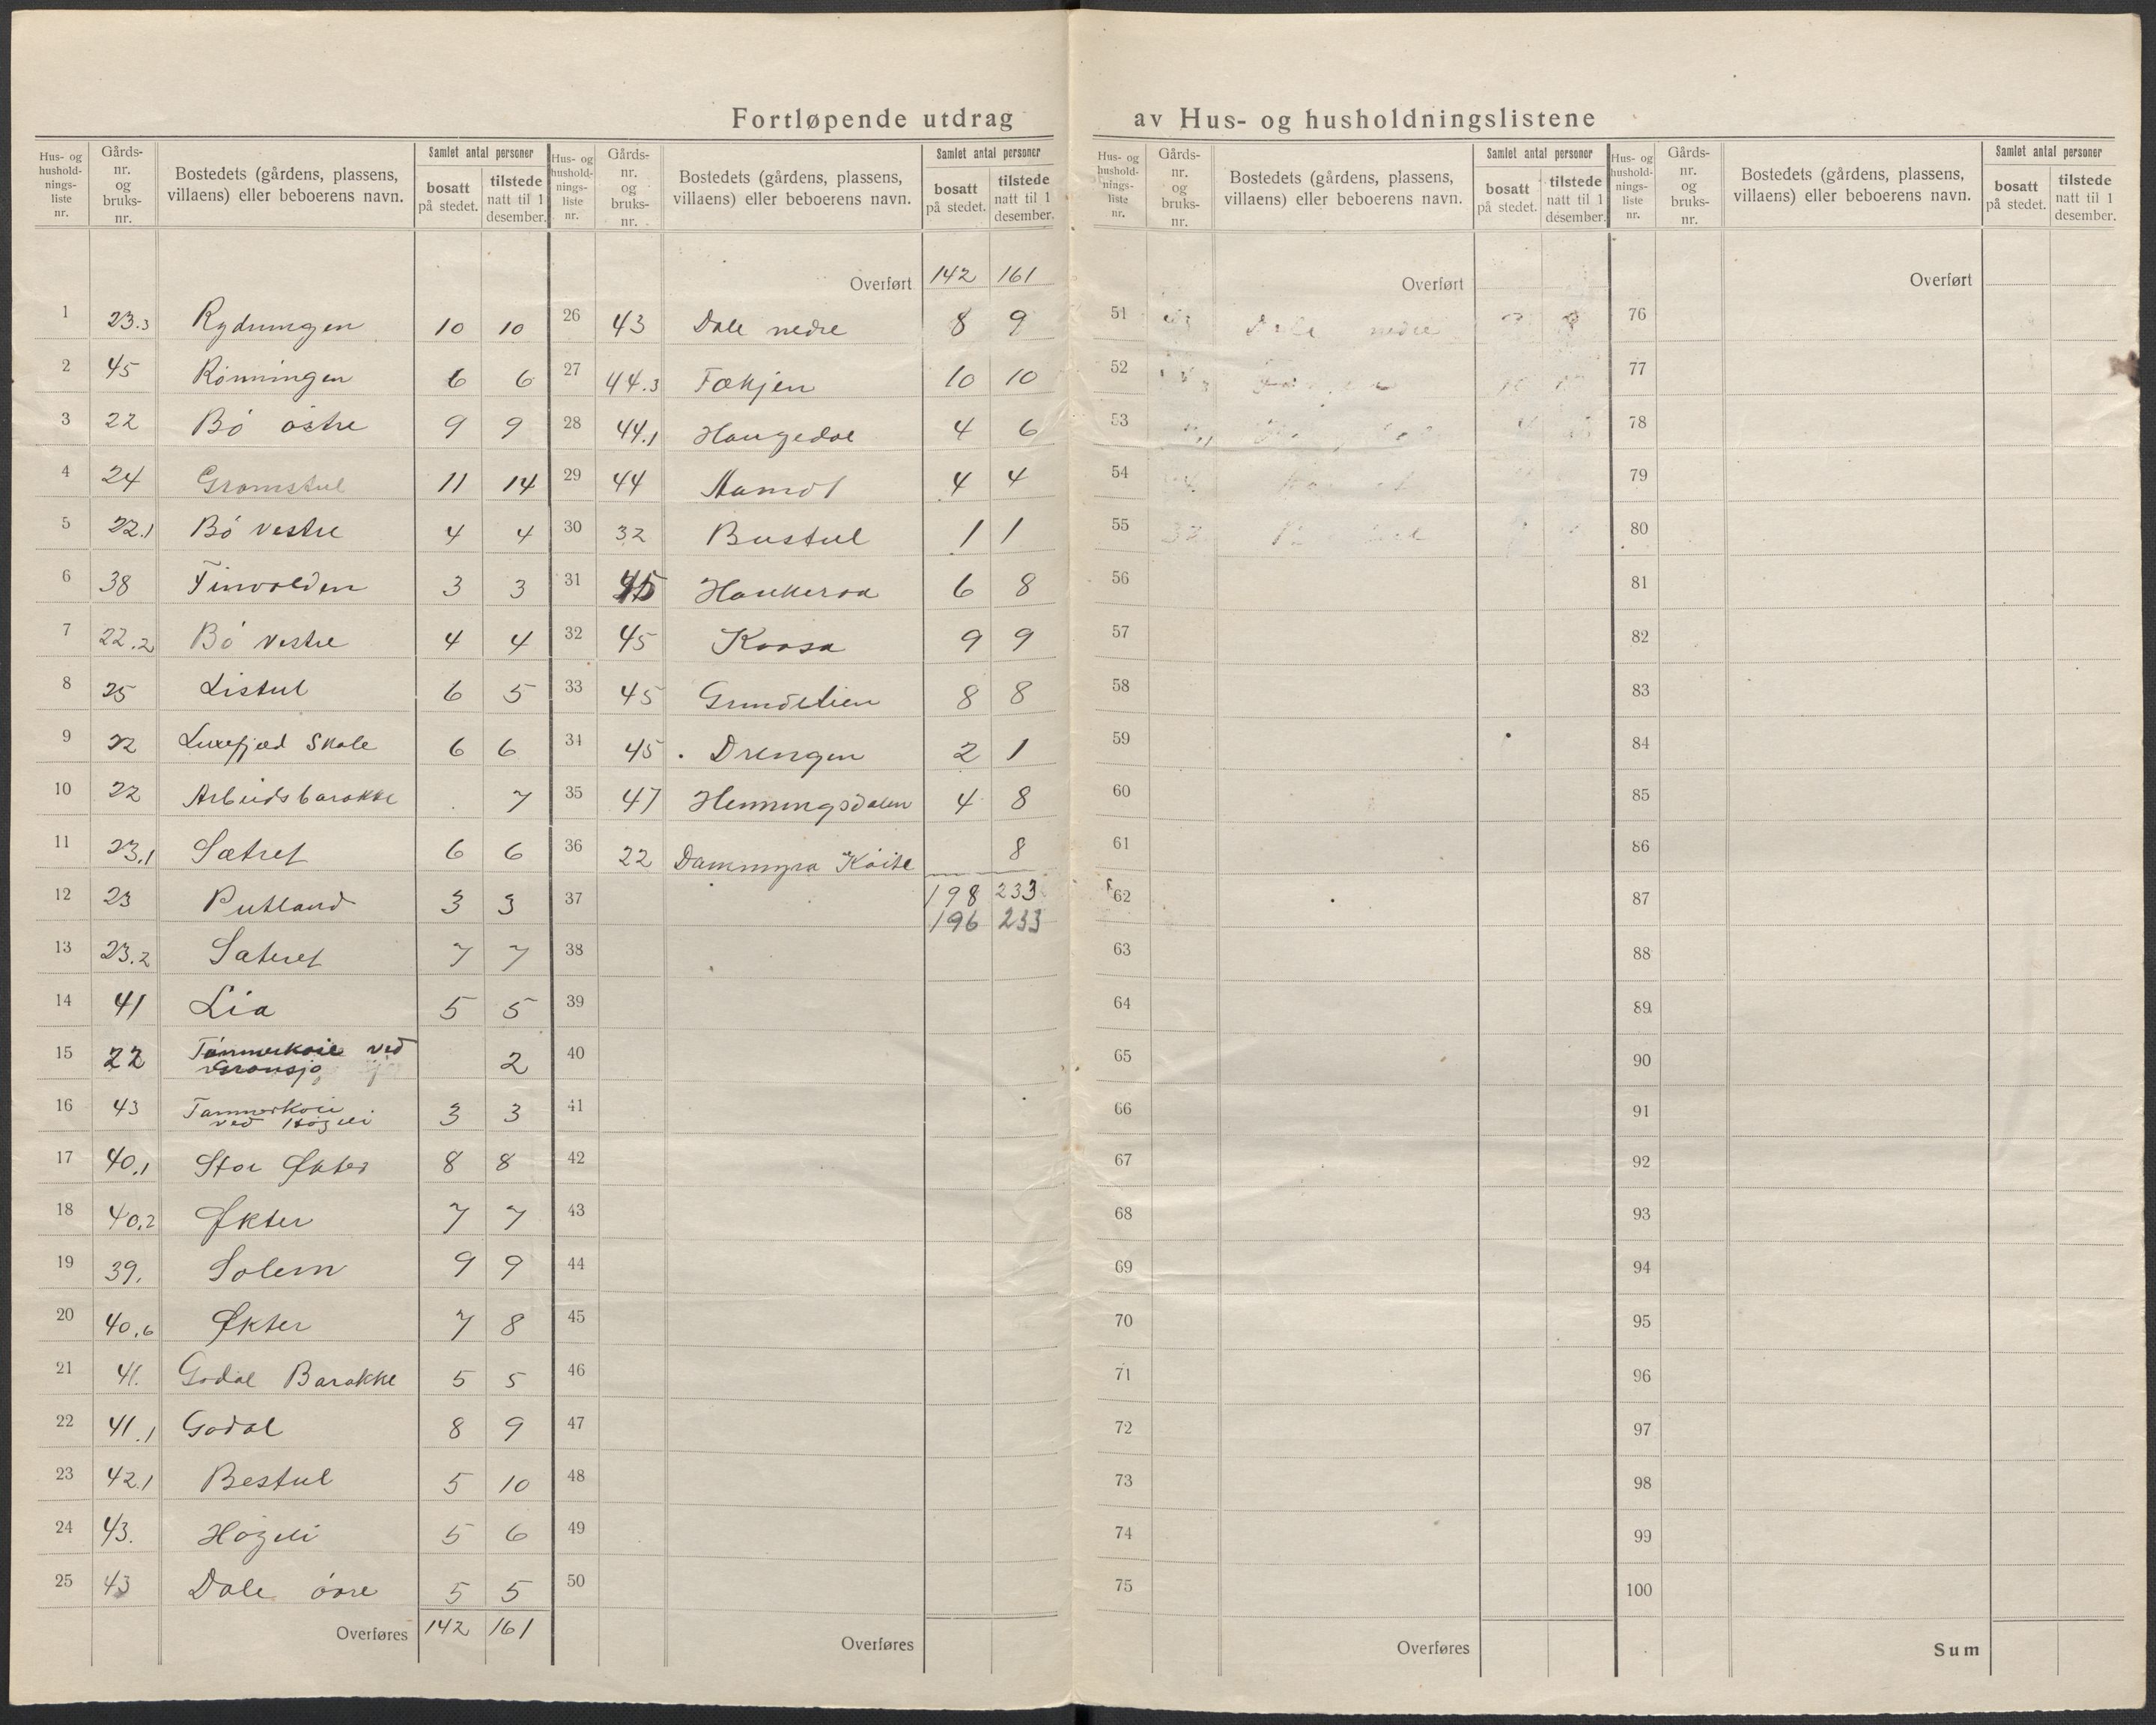 Fortløpende utdrag av Hus- og husholdningslistene
Hus- og husholdnings-liste nr. | Gårds-nr. og bruks-nr. | Bostedets (gårdens, plassens, villaens) eller beboerens navn. | Samlet antal personer: bosatt på stedet. | tilstede natt til 1 desember.
1 23.3 Rydningen 10 10
2 45 Rönningen 6 6
3 22 Bö östre 9 9
4 24 Gromstul 11 14
5 22.1 Bö vestre 4 4
6 38 Tinvolden 3 3
7 22.2 Bö vestre 4 4
8 25 Listul 6 5
9 22 Luxefjed Skole 6 6
10 22 Arbeidsbarakke . 7
11 23.1 Sætret 6 6
12 23 Putland 3 3
13 23.2 Sateret 7 7
14 41 Lia 5 5
15 22 Tömmerkoie ved Gronsjo 2
16 43 Tømmerkoie ved Högeli 3 3
17 40.1 Stor Økter 8 8
18 40.2 Økter 7 7
19 39. Solem 9 9
20 40.6 Økter 7 8
21 41. Godal Barakke 5 5
22 41.1 Godal 8 9
23 42.1 Bestul 5 10
24 43. Högeli 5 6
25 43 Dale övre 5 5
Overføres 142 161
Hus- og husholdnings-liste nr. | Gårds-nr. og bruks-nr. | Bostedets (gårdens, plassens, villaens) eller beboerens navn. | Samlet antal personer: bosatt på stedet. | tilstede natt til 1 desember.
Overført 142 161
26 43 Dale nedre 8 9
27 44.3 Fækjen 10 10
28 44.1 Haugedal 4 6
29 44 Aamot 4 4
30 32 Bustul 1 1
31 45 Haukeraa 6 8
32 45 Kaasa 9 9
33 45 Grundelien 8 8
34 45 Drengen 2 1
35 47 Henningsdalen 4 8
36 22 Dammyra Köite 8
37 198 233
196 233
38
39
40
41
42
43
44
45
46
47
48
49
50
Overføres
Hus- og husholdnings-liste nr. | Gårds-nr. og bruks-nr. | Bostedets (gårdens, plassens, villaens) eller beboerens navn. | Samlet antal personer: bosatt på stedet. | tilstede natt til 1 desember.
Overført
51 Dale nedre
52
53
54
55 32
56
57
58
59
60
61
62
63
64
65
66
67
68
69
70
71
72
73
74
75
Overføres
Hus- og husholdnings-liste nr. | Gårds-nr. og bruks-nr. | Bostedets (gårdens, plassens, villaens) eller beboerens navn. | Samlet antal personer: bosatt på stedet. | tilstede natt til 1 desember.
Overført
76
77
78
79
80
81
82
83
84
85
86
87
88
89
90
91
92
93
94
95
96
97
98
99
100
Sum